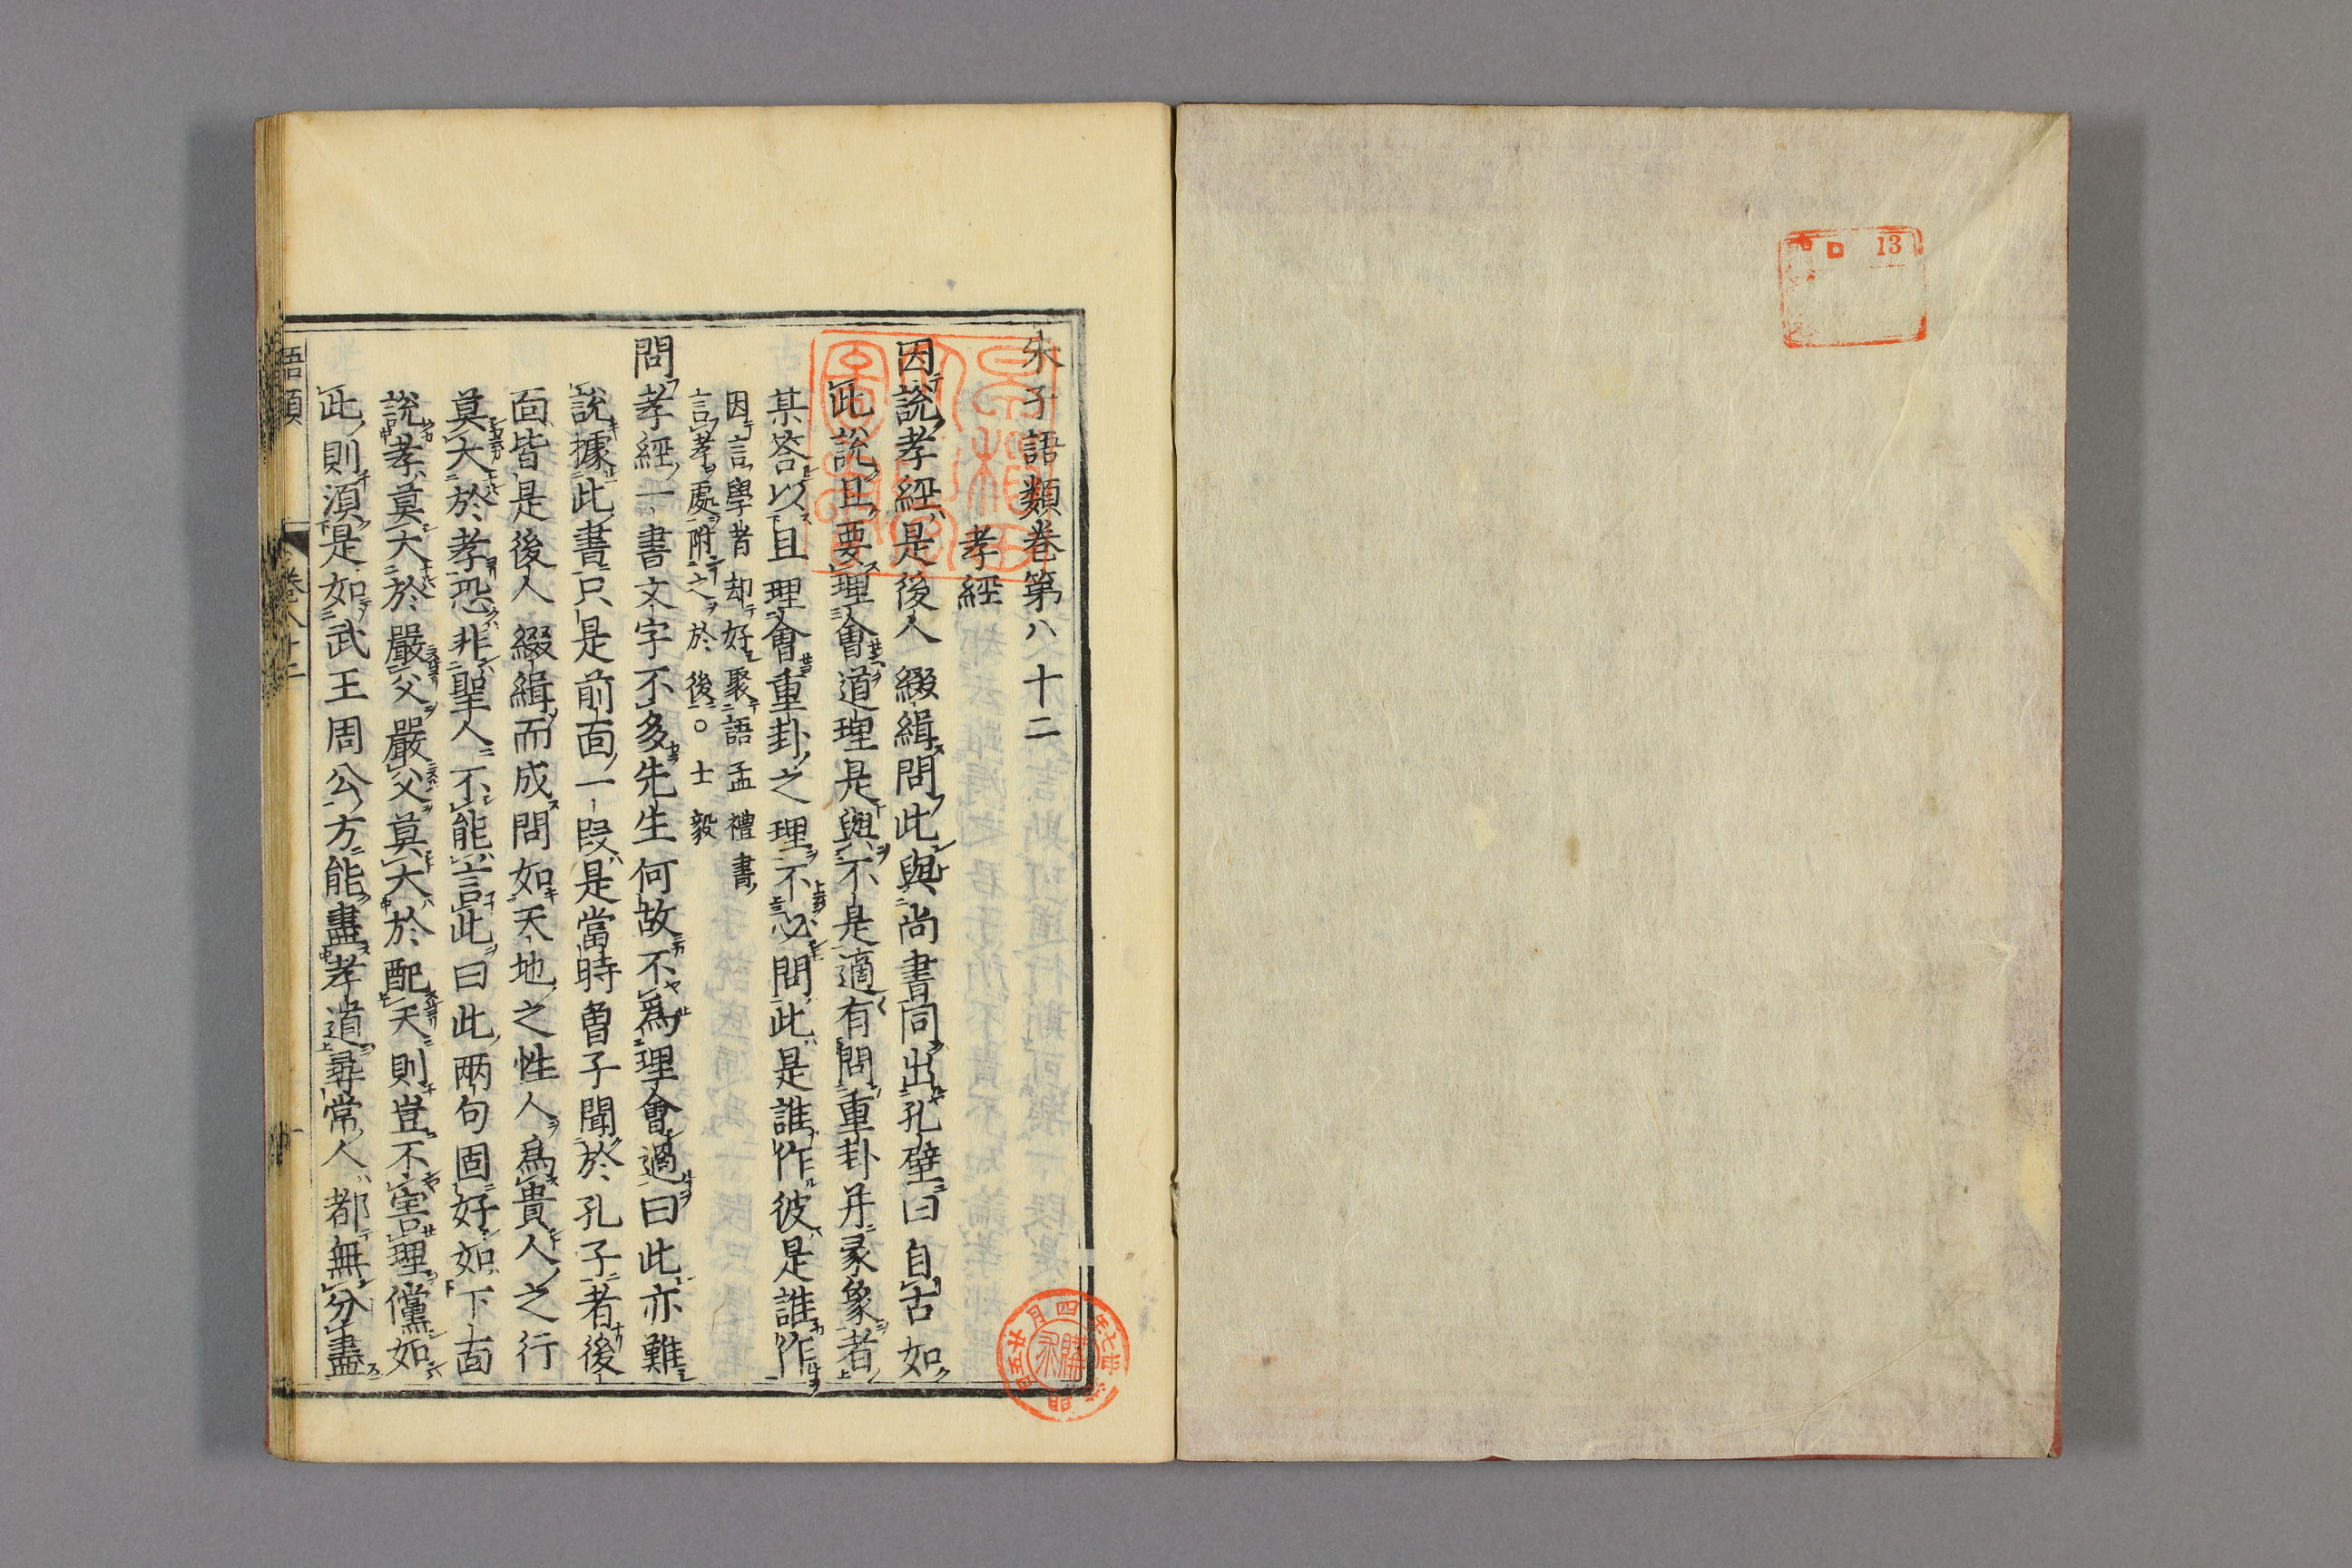 朱子語類卷第八十二
孝經
因說孝經是後人綴緝問此與尚書同出孔壁曰自古如
此說且要理會道理是與不是適有問重卦并彖象者
某答以且理會重卦之理不必問此是誰作彼是誰作
因言學者却好聚語孟禮書
言孝處附之於後○士毅
問孝經一書文字不多先生何故不爲理會過曰此亦難
說據此書只是前面一段是當時曾子聞於孔子者後
面皆是後人綴緝而成問如天地之性人爲貴人之行
莫大於孝恐非聖人不能言此曰此兩句固好如下面
說孝莫大於嚴父嚴父莫大於配天則豈不害理儻如
此則須是如武王周公方能盡孝道尋常人都無分盡
語類
卷八十二
一
13